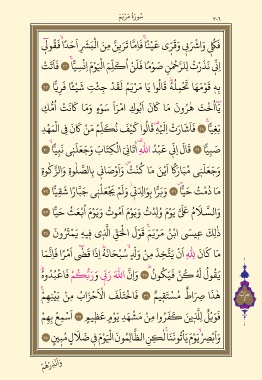 سُورَةُ مَرْيَمَ
٣٠٦
فَكُلِي وَاشْرَبِي وَقَرِّي عَيْنًا فَإِمَّا تَرَيِنَّ مِنَ الْبَشَرِ أَحَدًا فَقُولِي
إِنِّي نَذَرْتُ لِلرَّحْمٰنِ صَوْمًا فَلَنْ أُكَلِّمَ الْيَوْمَ إِنْسِيًّا ۝ فَأَتَتْ
بِهِ قَوْمَهَا تَحْمِلُهُ قَالُوا يَا مَرْيَمُ لَقَدْ جِئْتِ شَيْئًا فَرِيًّا ۝
يَا أُخْتَ هٰرُونَ مَا كَانَ أَبُوكِ امْرَأَ سَوْءٍ وَمَا كَانَتْ أُمُّكِ
بَغِيًّا ۝ فَأَشَارَتْ إِلَيْهِ قَالُوا كَيْفَ نُكَلِّمُ مَنْ كَانَ فِي الْمَهْدِ
صَبِيًّا ۝ قَالَ إِنِّي عَبْدُ اللّٰهِ اٰتَانِيَ الْكِتَابَ وَجَعَلَنِي نَبِيًّا ۝
وَجَعَلَنِي مُبَارَكًا أَيْنَ مَا كُنْتُ وَأَوْصَانِي بِالصَّلٰوةِ وَالزَّكٰوةِ
مَا دُمْتُ حَيًّا ۝ وَبَرًّا بِوَالِدَتِي وَلَمْ يَجْعَلْنِي جَبَّارًا شَقِيًّا ۝
وَالسَّلَامُ عَلَيَّ يَوْمَ وُلِدْتُ وَيَوْمَ أَمُوتُ وَيَوْمَ أُبْعَثُ حَيًّا ۝
ذٰلِكَ عِيسَى ابْنُ مَرْيَمَ قَوْلَ الْحَقِّ الَّذِي فِيهِ يَمْتَرُونَ ۝
مَا كَانَ لِلّٰهِ أَنْ يَتَّخِذَ مِنْ وَلَدٍ سُبْحَانَهُ إِذَا قَضٰى أَمْرًا فَإِنَّمَا
يَقُولُ لَهُ كُنْ فَيَكُونُ ۝ وَإِنَّ اللّٰهَ رَبِّي وَرَبُّكُمْ فَاعْبُدُوهُ
هٰذَا صِرَاطٌ مُسْتَقِيمٌ ۝ فَاخْتَلَفَ الْأَحْزَابُ مِنْ بَيْنِهِمْ
فَوَيْلٌ لِلَّذِينَ كَفَرُوا مِنْ مَشْهَدِ يَوْمٍ عَظِيمٍ ۝ أَسْمِعْ بِهِمْ
وَأَبْصِرْ يَوْمَ يَأْتُونَنَا لٰكِنِ الظَّالِمُونَ الْيَوْمَ فِي ضَلَالٍ مُبِينٍ ۝
وَأَنْذِرْهُمْ